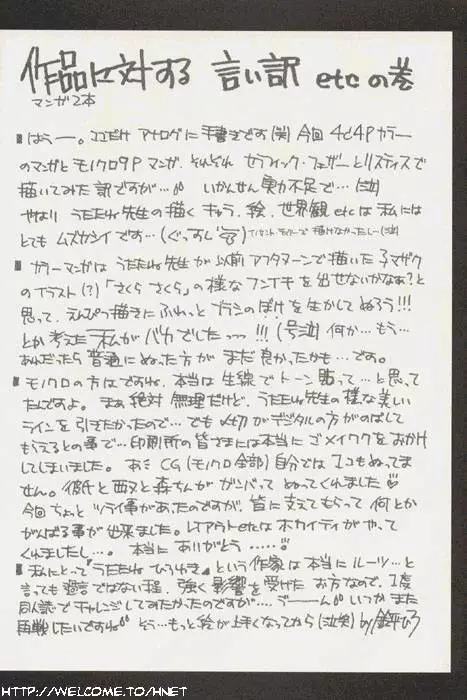 作品に対する 言い訳 etcの巻
マンガ2本
■はぅー。ココだけ アナログに手書きです(笑) 今回 4c4Pカラー
のマンガとモノクロ9Pマンガ、それぞれ セラフィック・フェザーとリスティスで
描いてみた訳ですが… いかんせん実力不足で…(泣)
やはり うたたね先生の描く キャラ、絵、世界観etcは 私には
とても ムズカシイです…(ぐっすし)
■カラーマンガは うたたね先生が 以前 アフタヌーンで描いた 
のイラスト(?)「さくら さくら」の様なフンイキを出せないかなぁ?と
思って、えんぴつ描きに ふわっと ブラシのぼけを生かしてぬろう!!!
とか考えた 私がバカでしたっ!!!(号泣) 何か…もう…
あれだったら 普通にぬった方が まだ 良かったかも…です。
■モノクロの方はですね、本当は生線でトーン貼って…と思って
たんですよ。 まぁ絶対 無理だけど、うたたね先生の様な美しい
ラインを引きたかったので… でも〆切がデジタルの方がのばして
もらえるとの事で…印刷所の皆さまには本当に ゴメイワクをおかけ
してしまいました。 あと CG(モノクロ全部)自分では 1コもぬってま
せん。彼氏と 西又と森ちんが ガンバって ぬってくれました♡
今回 ちょっと ツライ事があったのですが、皆に支えてもらって 何とか
がんばる事が出来ました。レイアウトetcは ホカイティが やって
くれましたし…。 本当に ありがとう……♡
■私にとって『うたたねひろゆき』という作家は本当に ルーツ…と
言っても 過言ではない程、強く影響を受けた お方なので、1度
同人誌で チャレンジしてみたかったのですが… うーーん いつか また
再戦したいですね もう…もっと絵が上手くなってから(泣笑) by 鈴平ひろ
HTTP://WELCOME.TO/HNET